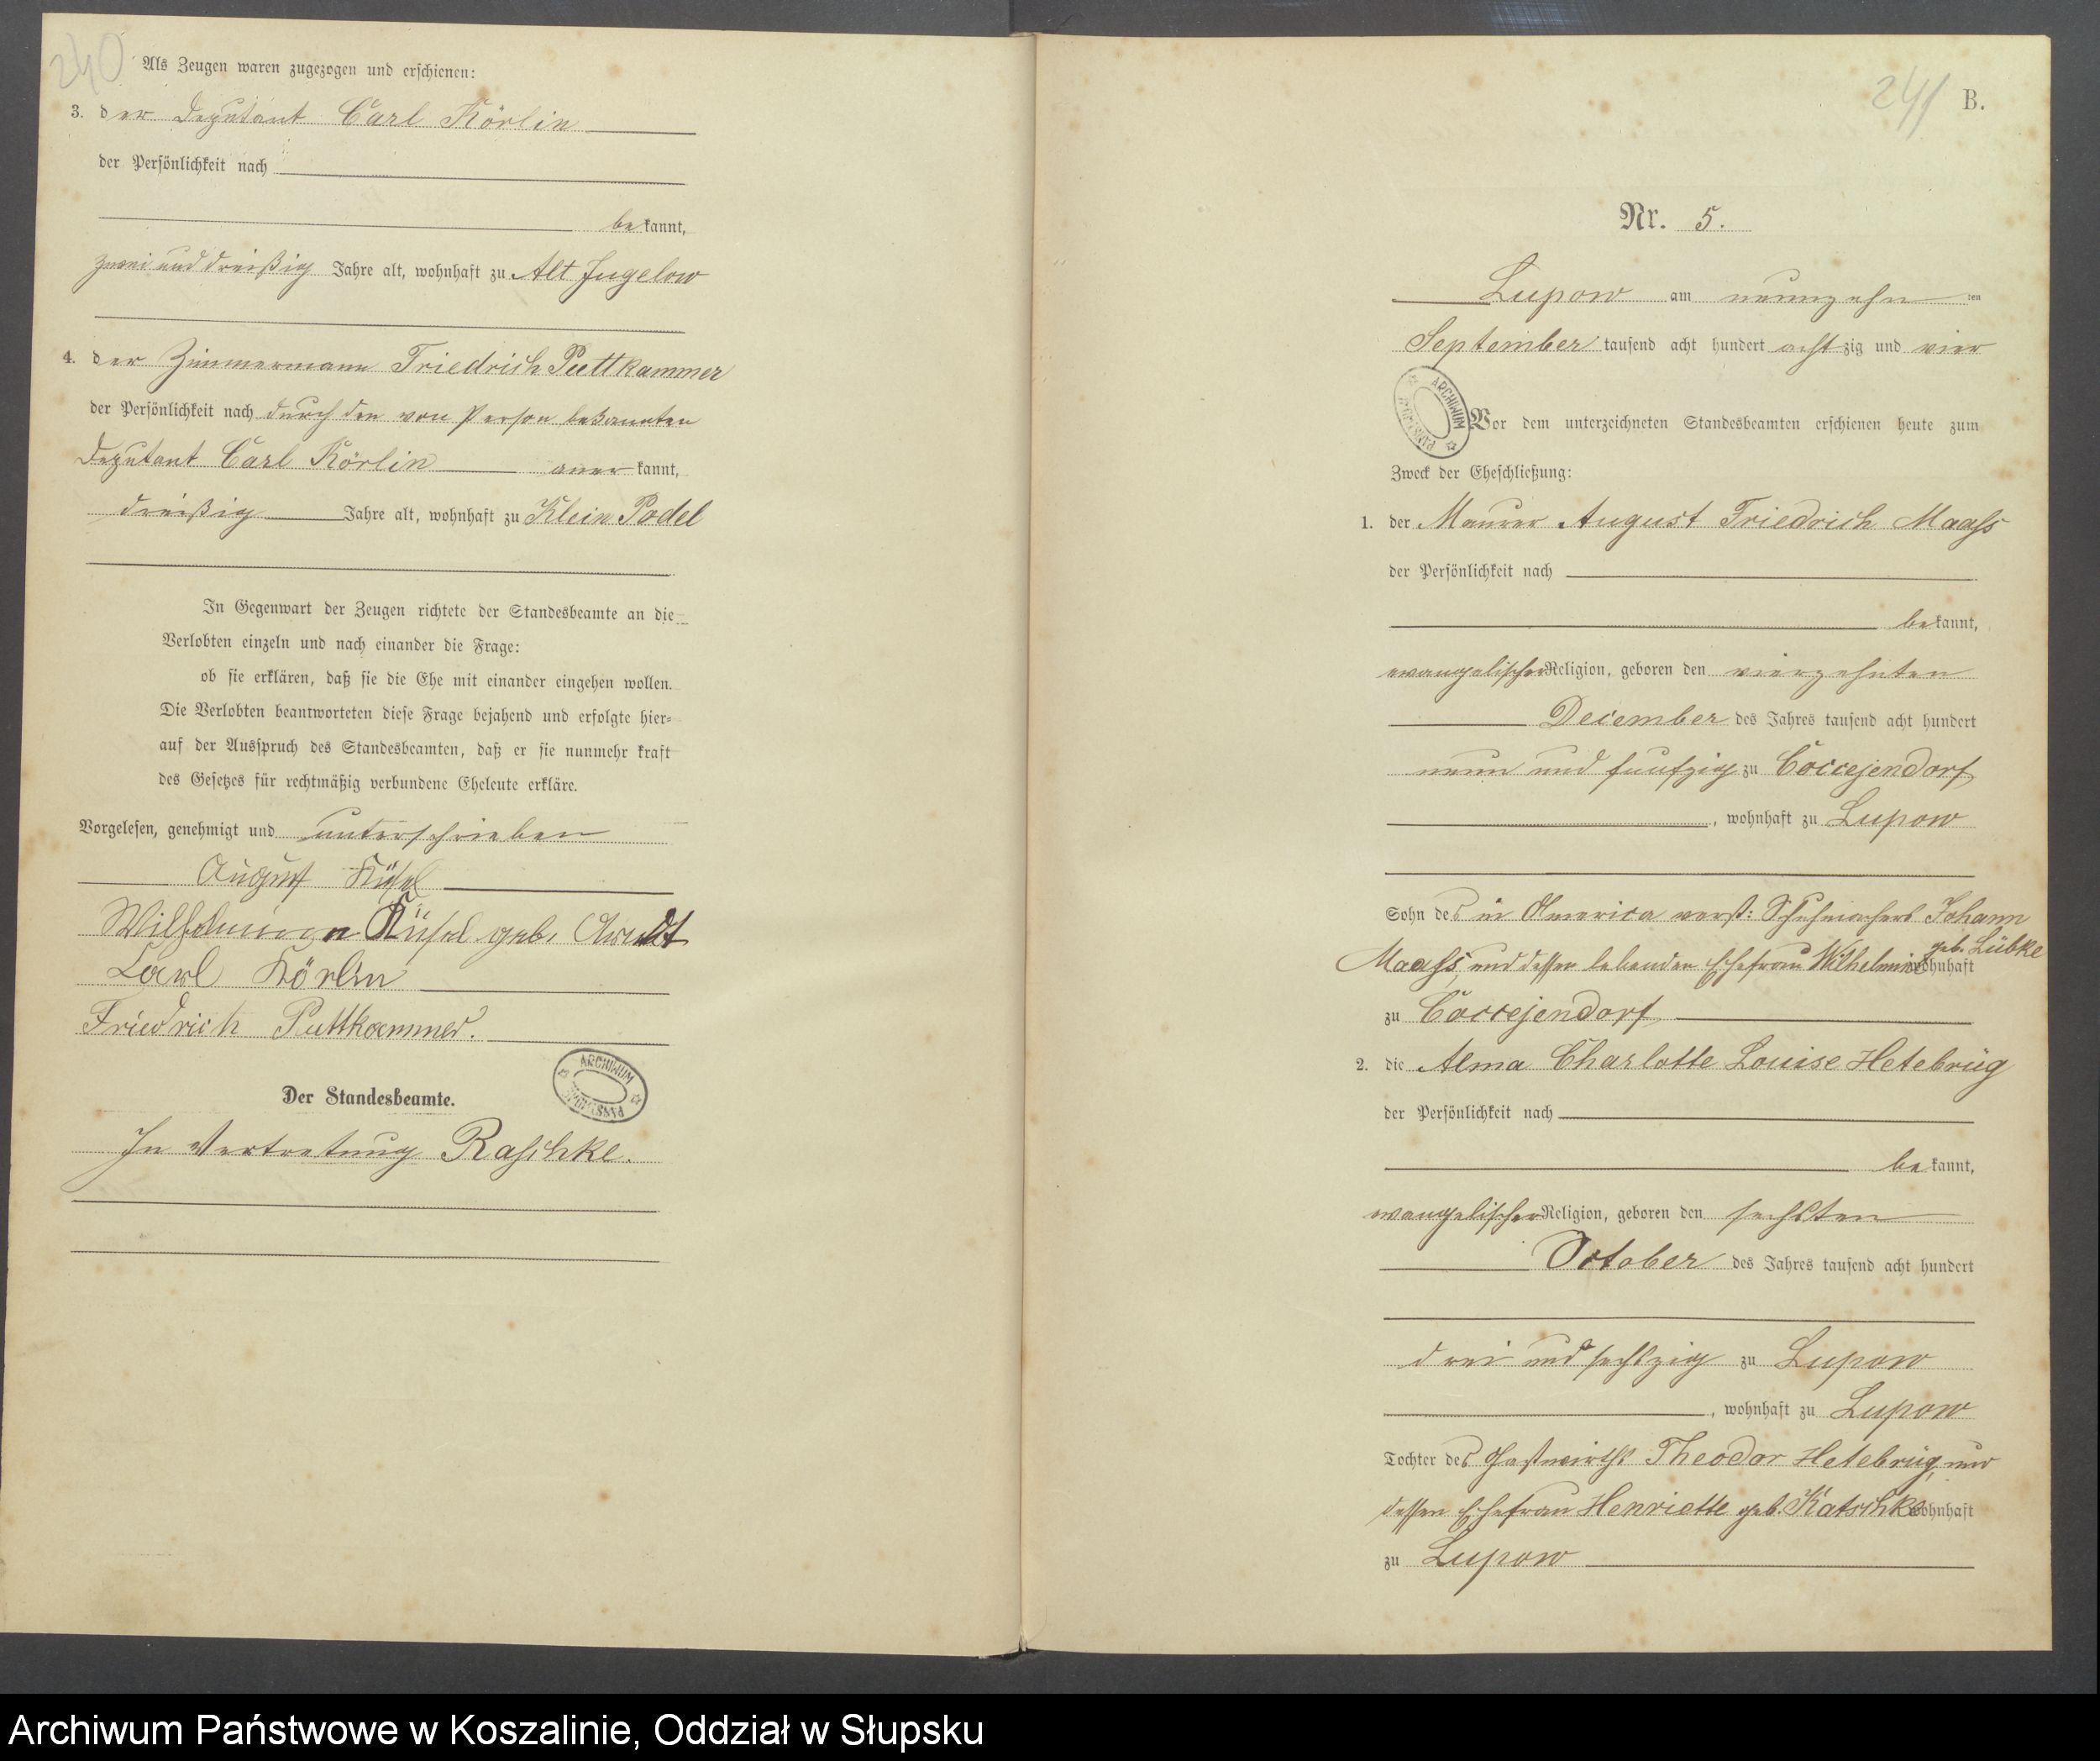 240
Als Zeugen waren zugezogen und erschienen:
3. der Deputant Carl Körlin
der Persönlichkeit nach
bekannt,
zwei und dreißig Jahre alt, wohnhaft zu Alt Jugelow
4. der Zimmermann Friedrich Puttkammer
der Persönlichkeit nach durch den von Person bekannten
Deputant Carl Körlin anerkannt,
dreißig Jahre alt, wohnhaft zu Klein Podel
In Gegenwart der Zeugen richtete der Standesbeamte an die
Verlobten einzeln und nach einander die Frage:
ob sie erklären, daß sie die Ehe mit einander eingehen wollen.
Die Verlobten beantworteten diese Frage bejahend und erfolgte hier-
auf der Ausspruch des Standesbeamten, daß er sie nunmehr kraft
des Gesetzes für rechtmäßig verbundene Eheleute erkläre.
Vorgelesen, genehmigt und unterschrieben
August Küsel
Wilhelmine Küsel geb. Arndt
Carl Körlin
Friedrich Puttkammer.
ARCHIWUM
Der Standesbeamte.
In Vertretung Raschke.
241 B.
Nr. 5.
Lupow am neunzehn ten
September tausend acht hundert achtzig und vier
ARCHIWUM
Vor dem unterzeichneten Standesbeamten erschienen heute zum
Zweck der Eheschließung:
1. der Maurer August Friedrich Maaß
der Persönlichkeit nach
bekannt,
evangelischer Religion, geboren den vierzehnten
December des Jahres tausend acht hundert
neun und funfzig zu Coccejendorf
, wohnhaft zu Lupow
Sohn des in America verst: Schuhmachers Johann
Maaß, und dessen lebenden Ehefrau Wilhelmine geb. Lübke wohnhaft
zu Coccejendorf
2. die Alma Charlotte Louise Hetebrüg
der Persönlichkeit nach
bekannt,
evangelischer Religion, geboren den sechsten
October des Jahres tausend acht hundert
drei und sechszig zu Lupow
, wohnhaft zu Lupow
Tochter des Gastwirths Theodor Hetebrüg, und
dessen Ehefrau Henriette geb. Katschke wohnhaft
zu Lupow
Archiwum Państwowe w Koszalinie, Oddział w Słupsku